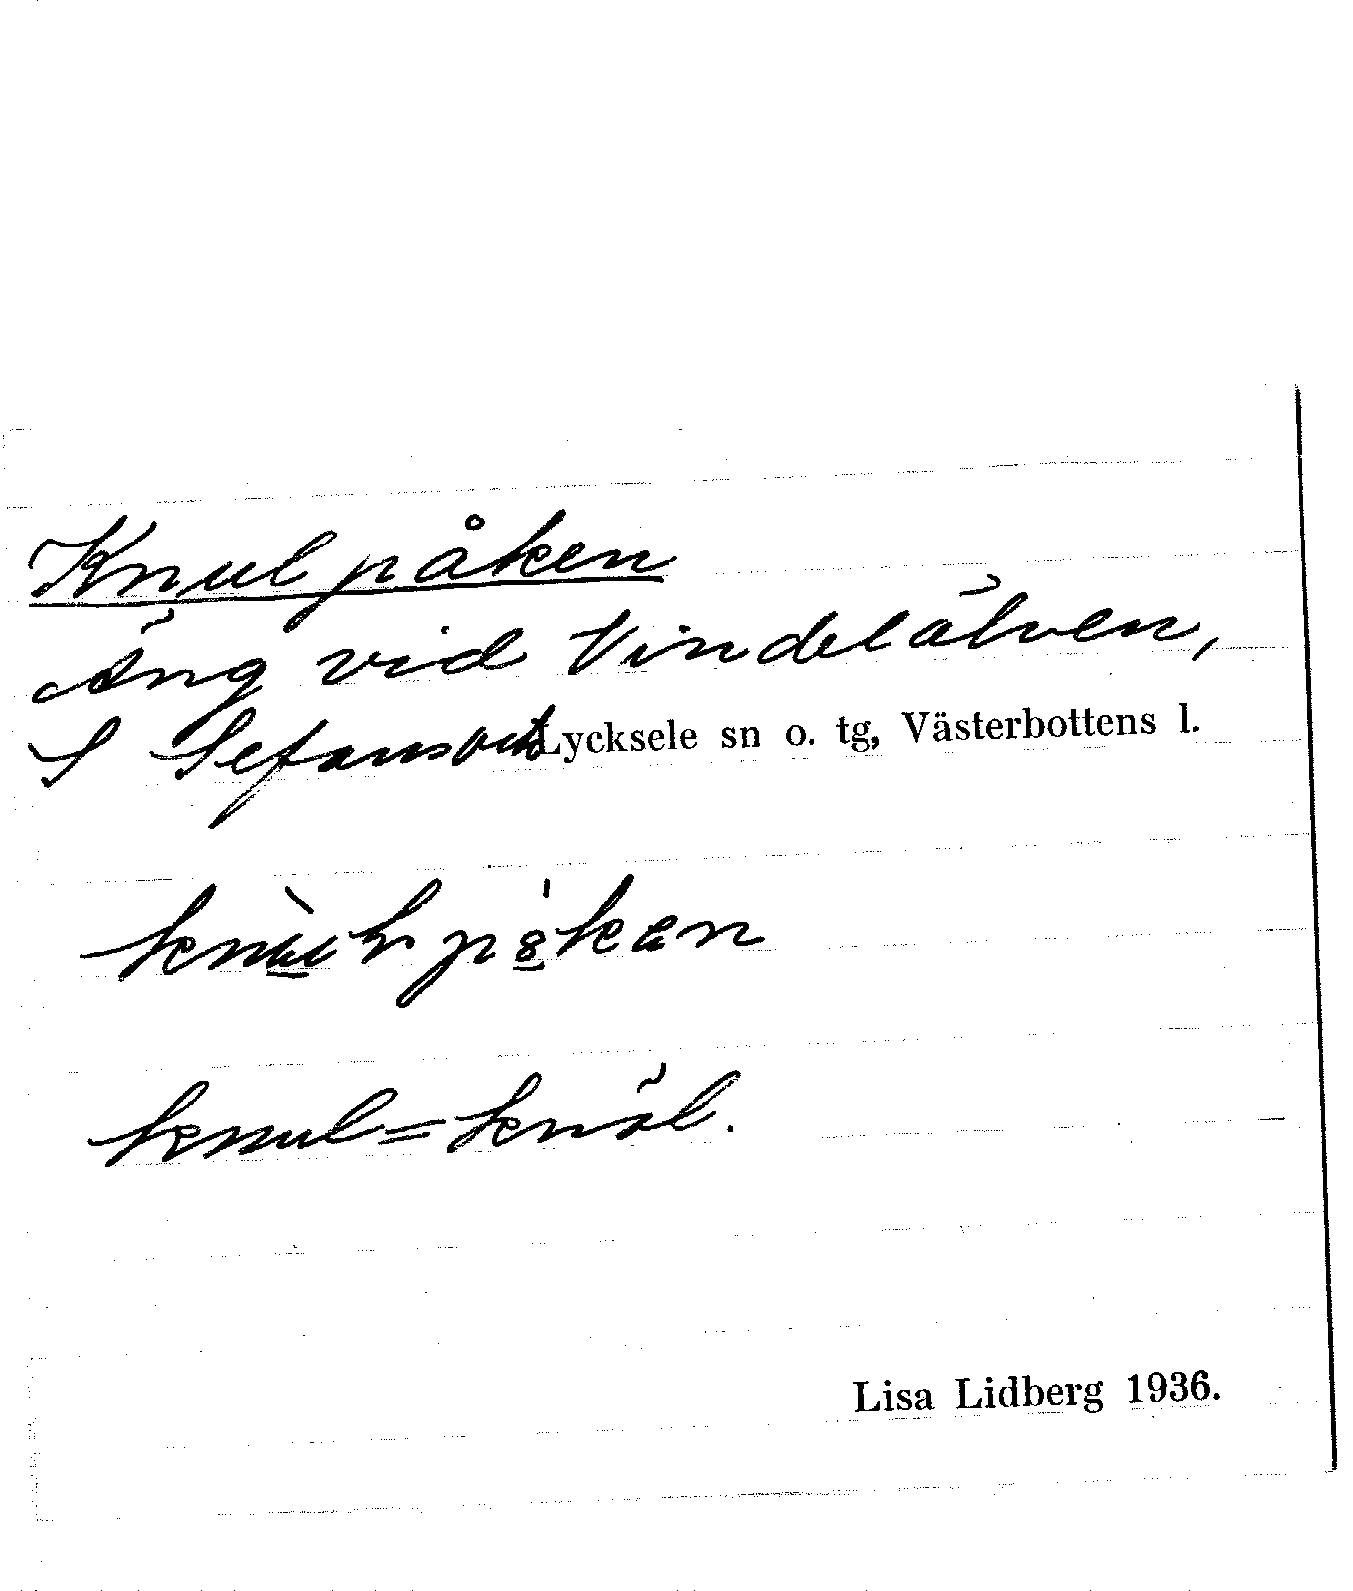 Knulpåken
äng vid Vindelälven,
S Sefansvik Lycksele sn o. tg, Västerbottens l.
knul = knöl.
Lisa Lidberg 1936.